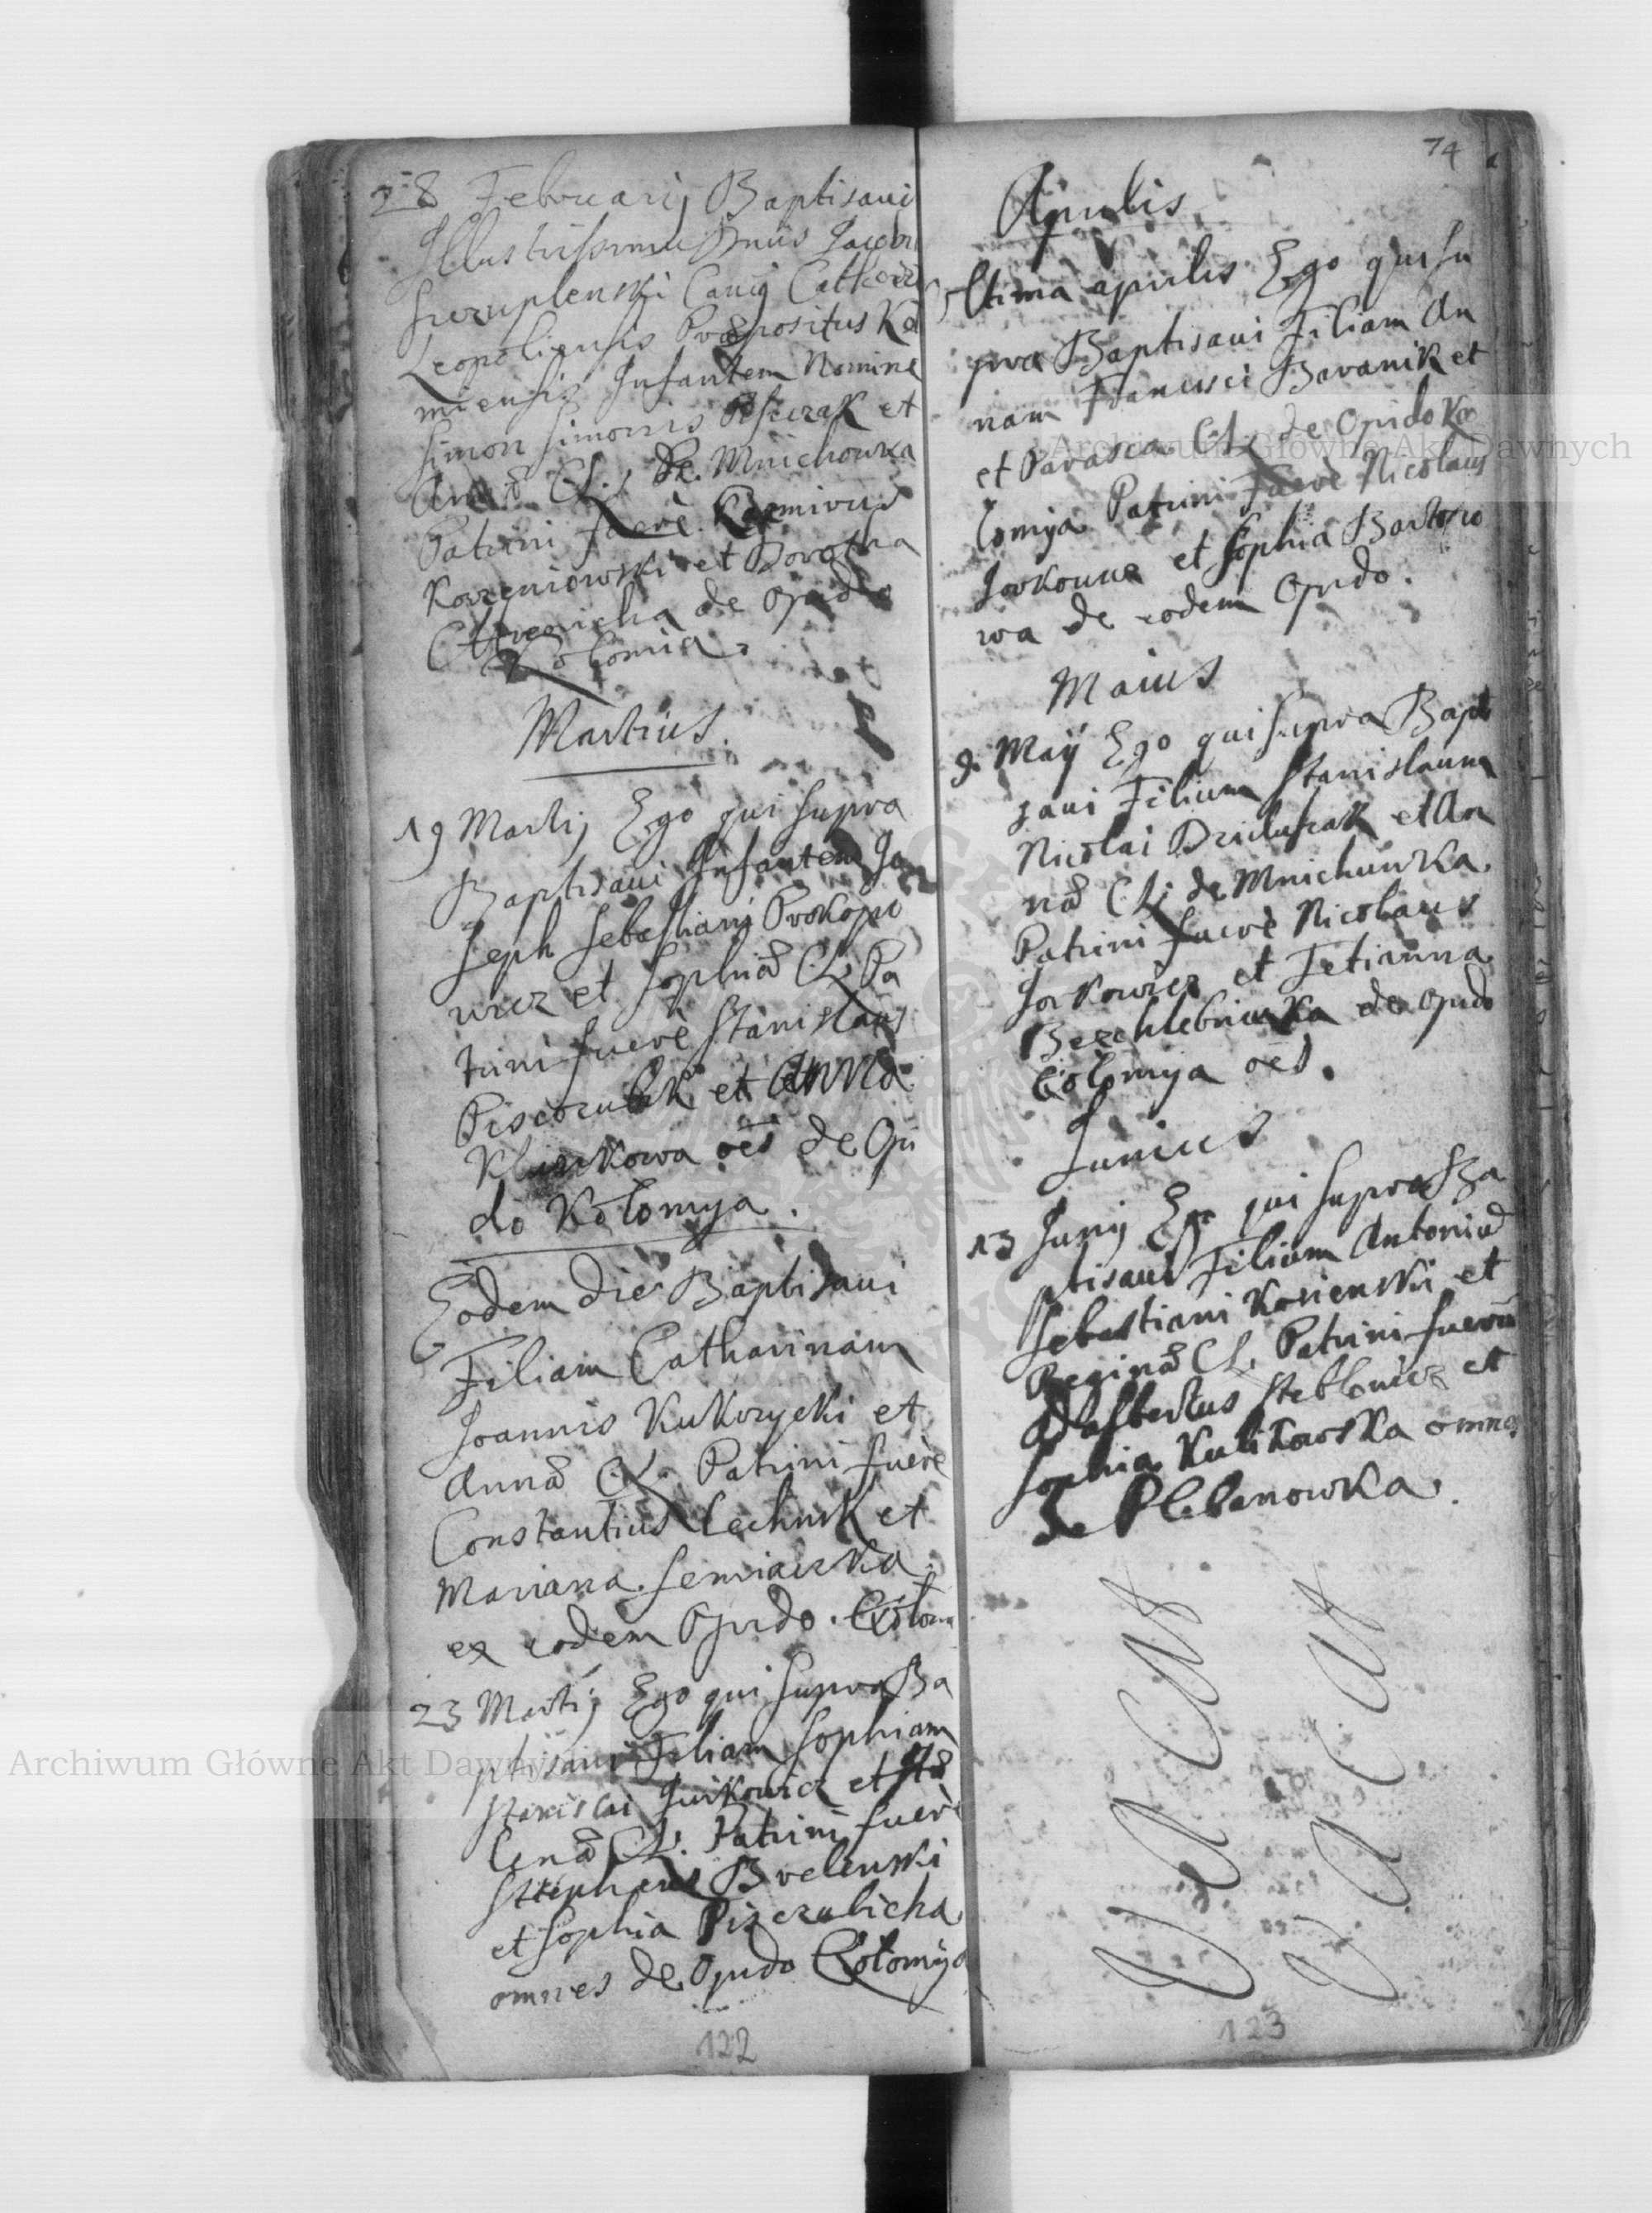 28 Februarij Baptisavi
Illustrissimus Dnus Jacobi
Canig Cathedr
Leopoliensis Præpositus Ko
miensis Infantem Nomine
Simon Simonis et
Annã CL. de Mnichowka
Patrini fuerè Casmirus
Korzeniowski et Dorotha
de Opido
Kolomia.
Martius.
19 Martij Ego qui supra
Baptisavi Infantem Jo
seph Sebastiani Prokopo
wicz et Sophiã CL Pa
trini fuerè Stanislaus
et Anna
oẽs de Opi
do Kołomya.
Eodem die Baptisavi
Filiam Catharinam
Joannis Kukorycki et
Annã CL. Patrini fuerè
Constantius Lechnik et
Mariana
ex eodem Opido. Cołom
23 Martij Ego qui supra Ba
ptisavi Filiam Sophiam
Stanislai Jurkowicz et He
lenã CL. Patrini fuerè
Stephanus
et Sophia Piszczulicha
omnes de Opido Cołomya
122
74
Aprilis
Ultima aprilis Ego qui su
pra Baptisavi Filiam An
nam Francisci Baranik et
et Parasca CL de Opido Ko
lomya Patrini fuerè Nicolaus
et Sophia Bartosio
wa de eodem Opido.
Maius
9. Maÿ Ego qui supra Bapt
zavi Filium Stanislaum
Nicolai et An
nã CL de Mnichuwka
Patrini fuerè Nicolaus
Jorkowicz et Tetianna
de Opido
Cołomya oẽs.
Junius
13 Junij Ego qui supra Ba
ptisavi Filium Antoniũ
Sebastiani Kosienski et
Reginã CL. Patrini fuerũ
Adalbertus Steblowicz et
Sophia Kulikowska omnes
de Plebanowka.
123
Archiwum Główne Akt Dawnych
Archiwum Główne Akt Dawnych